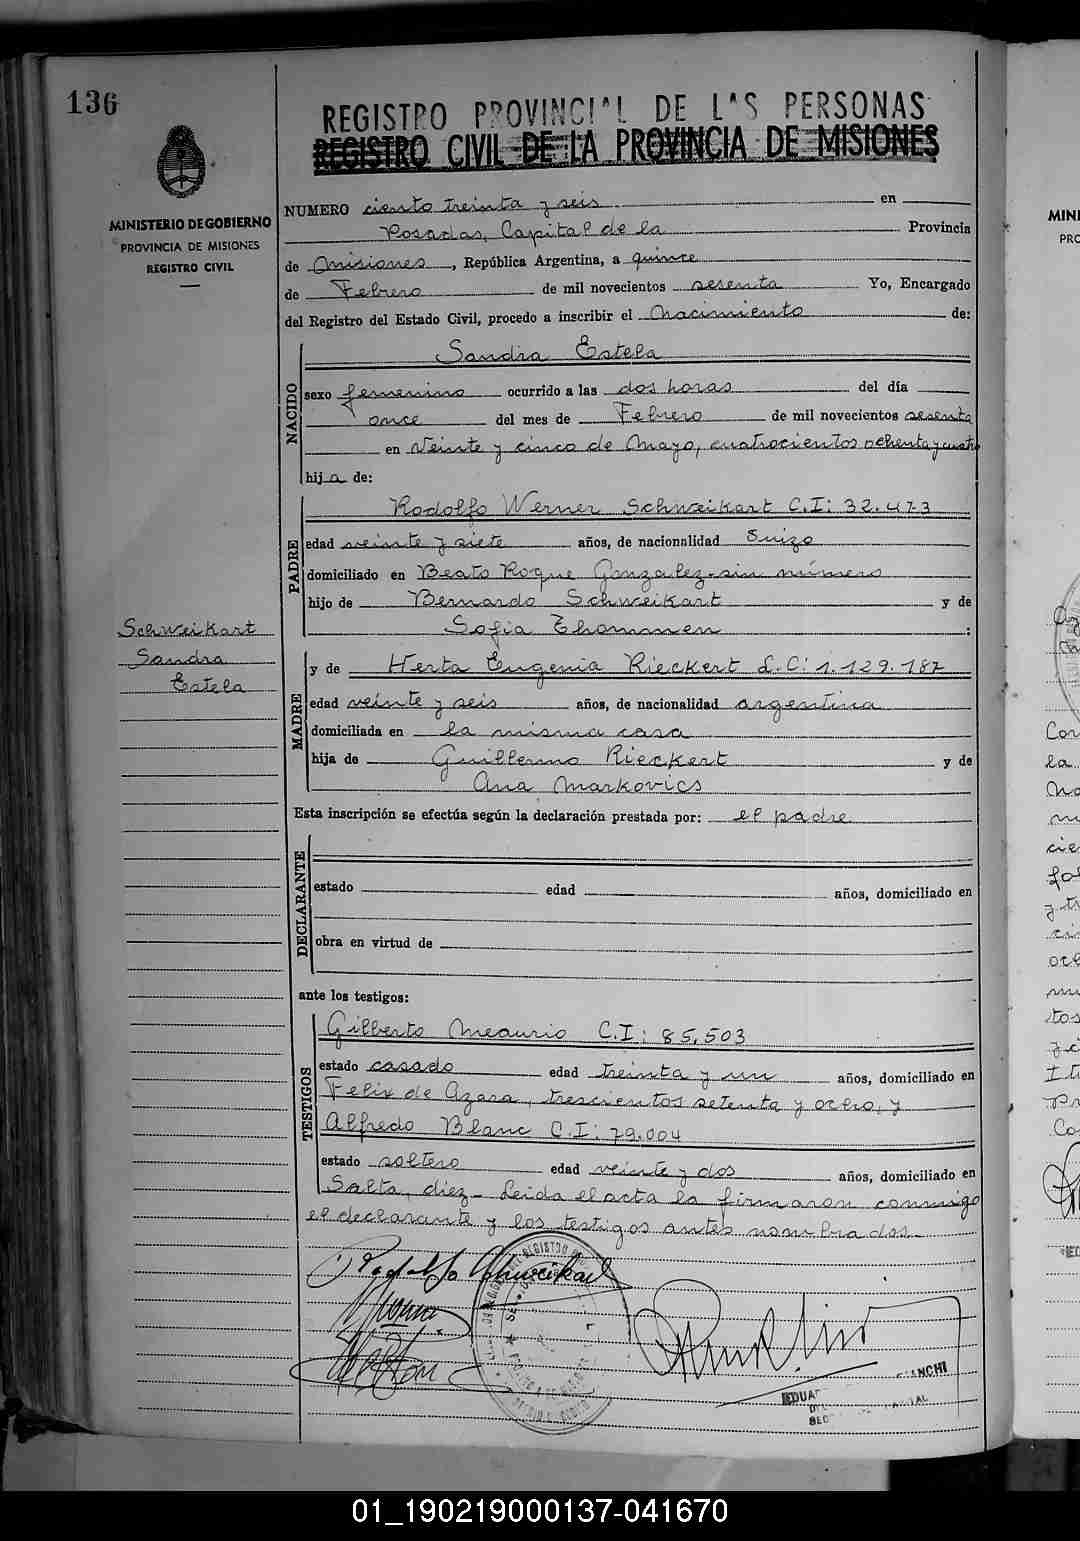 136
REGISTRO PROVINCIAL DE LAS PERSONAS
REGISTRO CIVIL DE LA PROVINCIA DE MISIONES
MINISTERIO DE GOBIERNO
PROVINCIA DE MISIONES
REGISTRO CIVIL
NUMERO ciento treinta y seis en
Posadas, Capital de la Provincia
de Misiones, República Argentina, a quince
de Febrero de mil novecientos sesenta Yo, Encargado
del Registro del Estado Civil, procedo a inscribir el Nacimiento de:
NACIDO
Sandra Estela
sexo femenino ocurrido a las dos horas del día
once del mes de Febrero de mil novecientos sesenta
en Veinte y cinco de Mayo, cuatrocientos ochenta y cuatro
hija de:
PADRE
Rodolfo Werner Schweikart C.I: 32.473
edad veinte y siete años, de nacionalidad Suizo
domiciliado en Beato Roque Gonzalez - sin número
hijo de Bernardo Schweikart y de
Sofia Thommen :
Schweikart
Sandra
Estela
MADRE
y de Herta Eugenia Rieckert L.C: 1.129.187
edad veinte y seis años, de nacionalidad argentina
domiciliada en la misma casa
hija de Guillermo Rieckert y de
Ana Markovics
Esta inscripción se efectúa según la declaración prestada por: el padre
DECLARANTE
estado edad años, domiciliado en
obra en virtud de
ante los testigos:
TESTIGOS
Gilberto Meaurio C.I: 85.503
estado casado edad treinta y un años, domiciliado en
Felix de Azara, trescientos setenta y ocho, y
Alfredo Blanc C.I: 79.004
estado soltero edad veinte y dos años, domiciliado en
Salta, diez - Leida el acta la firmaron conmigo
el declarante y los testigos antes nombrados.
Rodolfo Schweikart
01_190219000137-041670